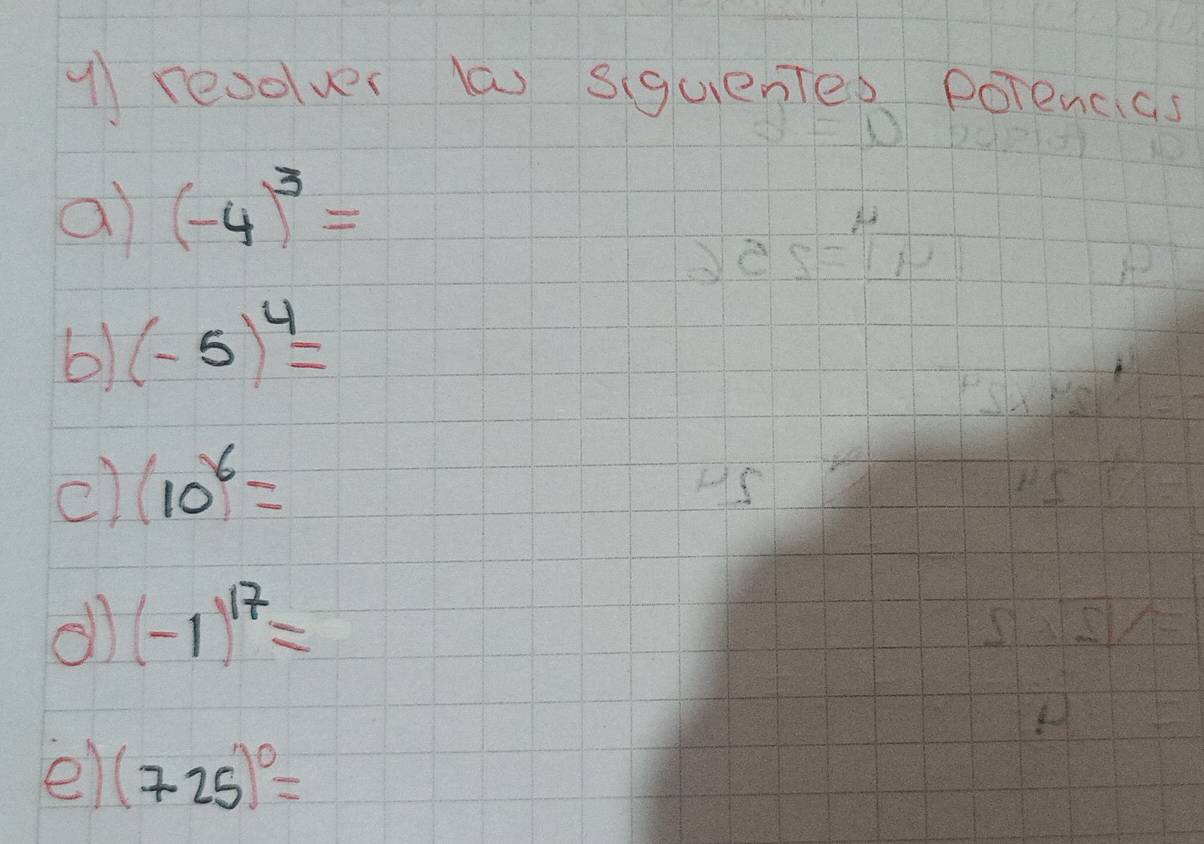 4) resolver las siguientes potencias
a) (-4)³ =
b) (-5)⁴ =
c) (10)⁶ =
d) (-1)¹⁷ =
e) (725)⁰ =